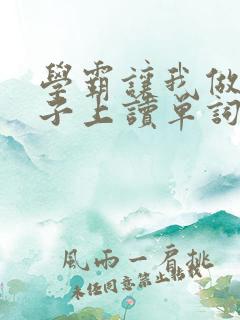 學霸讓我做
子上讀單詞
風雨一肩挑
未经同意禁止转载